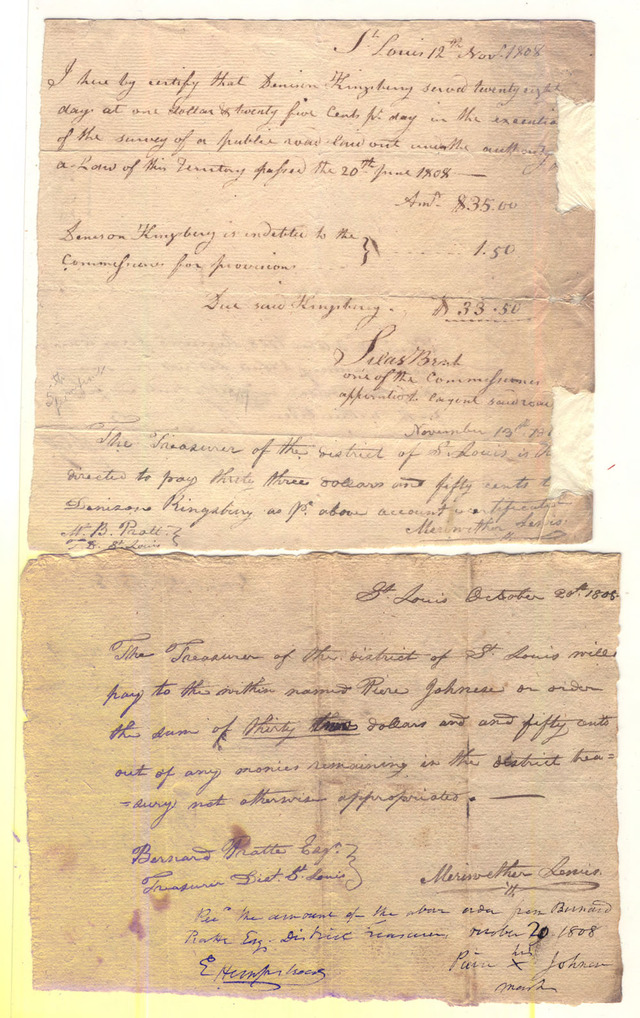 St. Louis 12th Novr. 1808
I here by certify that Denison Kingsbery served twenty eight
days at one dollar & twenty five Cents pr. day in the execution
of the survey of a public road laid out under the authority
a Law of this Territory passed the 20th June 1808 —
Amt. $35.00
Denison Kingsberg is indebted to the
Commissioners for provisions } 1.50
Due said Kingsbury. $33.50
Silas Brent
one of the Commissioners
November 13th
The Treasurer of the district of St. Louis is
directed to pay thirty three dollars and fifty cents t
Denison Kingsbury as pr. above account & certificate
Meriwether Lewis.
Mr. B. Pratte }
T. D. St Louis
St. Louis October 20th. 1808
The Treasurer of the district of St. Louis will
pay to the within named Piere Johnese or order
the sum of thirty three dollars and and fifty cents
out of any monies remaining in the district trea=
=sury not otherwise appropriated. —
Bernard Pratte Esqr. }
Treasurer Dist. St Louis }
Meriwether Lewis.
Recd. the amount of the above order from Bernard
Pratte Esq. District Treasurer October 20th 1808
E Hempstead
his
Piere X Johnese
mark